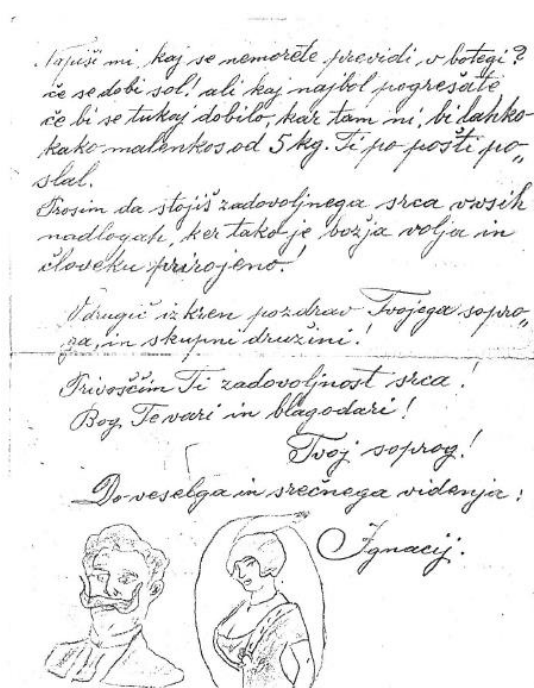 Napiši mi, kaj se nemorete previdi, v botegi?
če se dobi sol! ali kaj najbol pogrešate
če bi se tukaj dobilo, kar tam ni, bi lahko
kako malenkos od 5 kg. Ti po pošti po„
slal.
Prosim da stojiš zadovoljnega srca vwsih
nadlogah, ker tako je božja volja in
človeku prirojeno!
Vdrugič izkren pozdrav Tvojega sopro„
ga, in skupni družini!
Privoščim Ti zadovoljnost srca!
Bog Te vari in blagodari!
Tvoj soprog!
Do veselga in srečnega videnja:
Ignacij.